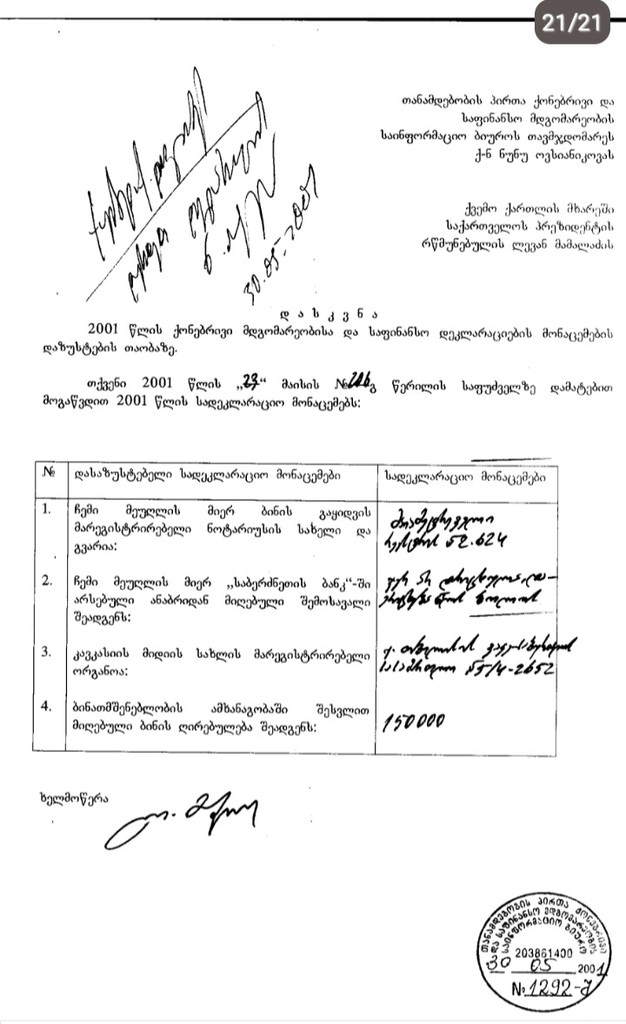 21/21
თანამდებობის პირთა ქონებრივი და
საფინანსო მდგომარეობის
საინფორმაციო ბიუროს თავმჯდომარეს
ქ-ნ ნუნუ ოვსიანიკოვას
ქვემო ქართლის მხარეში
საქართველოს პრეზიდენტის
რწმუნებულის ლევან მამალაძის
30.05-2001
დ ა ს კ ვ ნ ა
2001 წლის ქონებრივი მდგომარეობისა და საფინანსო დეკლარაციების მონაცემების
დაზუსტების თაობაზე.
თქვენი 2001 წლის „23“ მაისის № წერილის საფუძველზე დამატებით
მოგაწვდით 2001 წლის სადეკლარაციო მონაცემებს:
№ დასაზუსტებელი სადეკლარაციო მონაცემები სადეკლარაციო მონაცემები
1. ჩემი მეუღლის მიერ ბინის გაყიდვის
მარეგისტრირებელი ნოტარიუსის სახელი და
გვარია:
რეესტრის №2.624
2. ჩემი მეუღლის მიერ „საბერძნეთის ბანკ“-ში
არსებული ანაბრიდან მიღებული შემოსავალი
შეადგენს:
3. კავკასიის მიდიის სახლის მარეგისტრირებელი
ორგანოა:
ქ. თბილისის
სასამართლო №5/4-2652
4. ბინათმშენებლობის ამხანაგობაში შესვლით
მიღებული ბინის ღირებულება შეადგენს:
150000
ხელმოწერა
თანამდებობის პირთა ქონებრივი
და საფინანსო მდგომარეობის
საინფორმაციო ბიურო
203861400
30 05 2001
№1292-